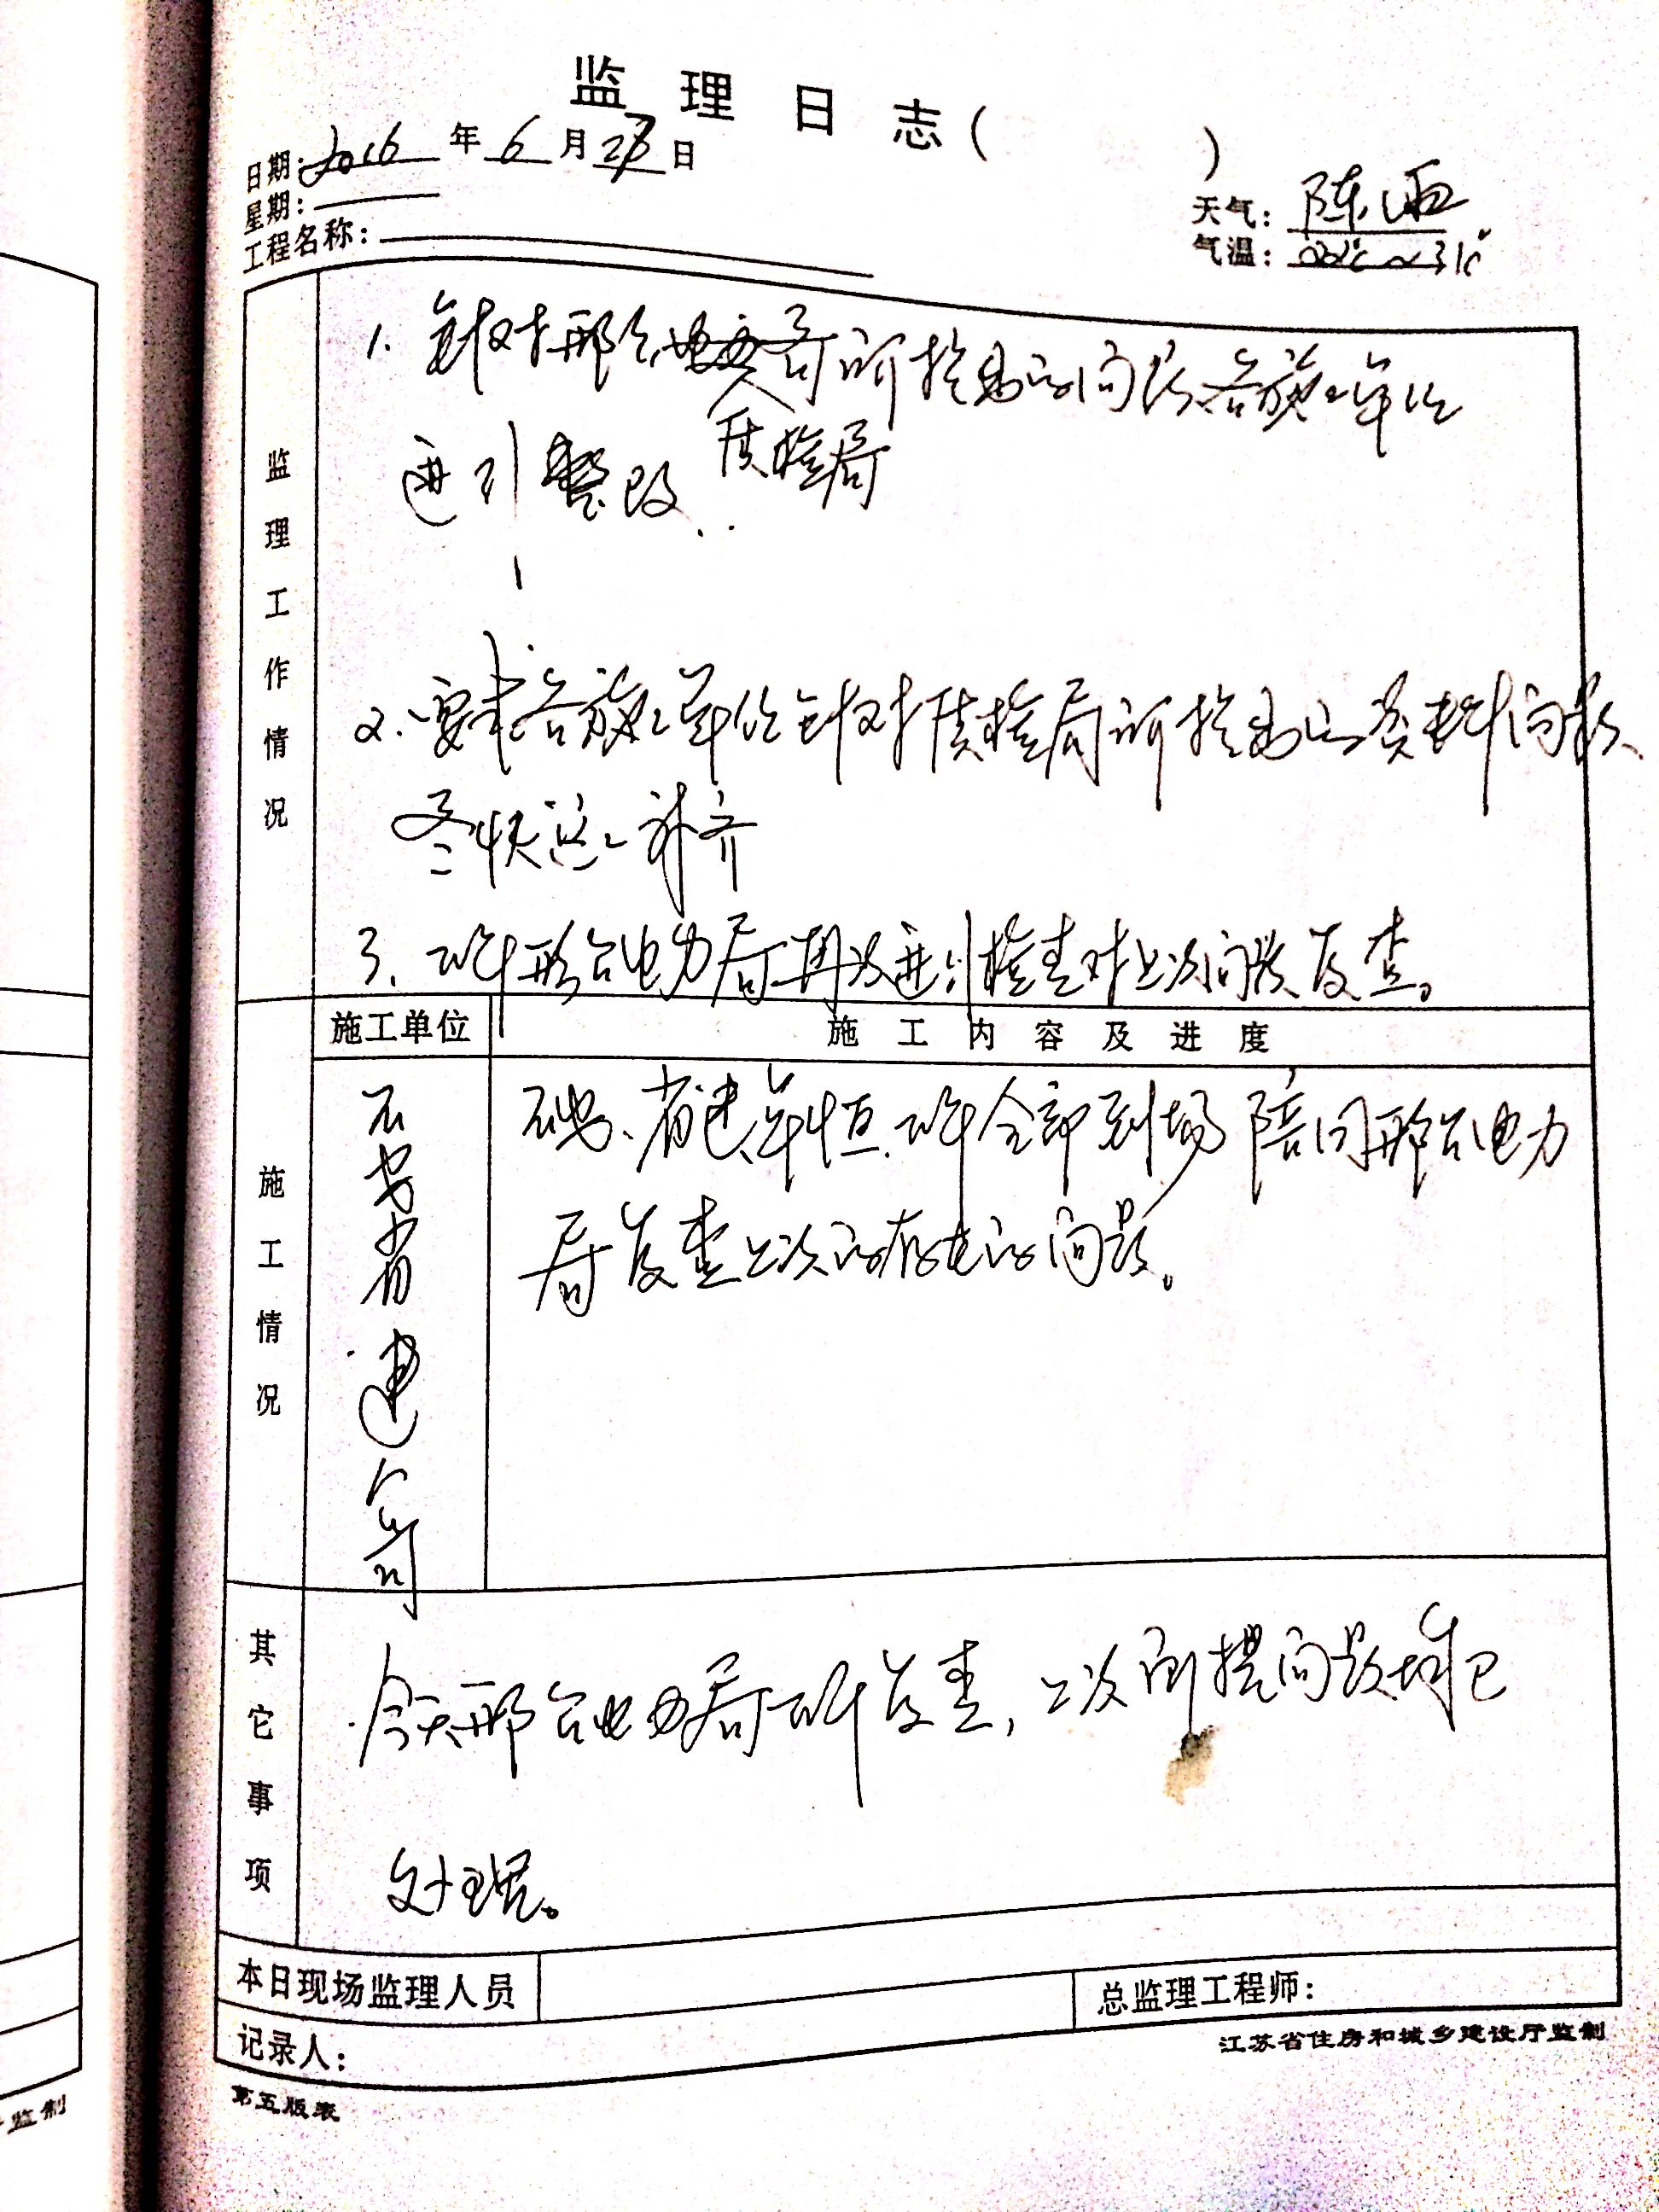 监 理 日 志 (          )
日期: 2016 年 6 月 27 日
星期:
天气: 阵雨
工程名称:
气温: 22℃~31℃
监理工作情况
1. 针对邢台 局所指出的问题各施工单位
质检局
进行整改.
2. 要求各施工单位针对质检局所指出的资料问题、
尽快 补齐
3. 邢台电力局再次进行检查对上次问题复查。
施工单位
施 工 内 容 及 进 度
施工情况
石安省建公司
石安、省建、 恒. 全部到场 陪同邢台电力
局复查上次的存在的问题。
其它事项
今天邢台电力局 复查, 上次所提问题均已
处理。
本日现场监理人员
总监理工程师:
记录人:
江苏省住房和城乡建设厅监制
第五版表
监制